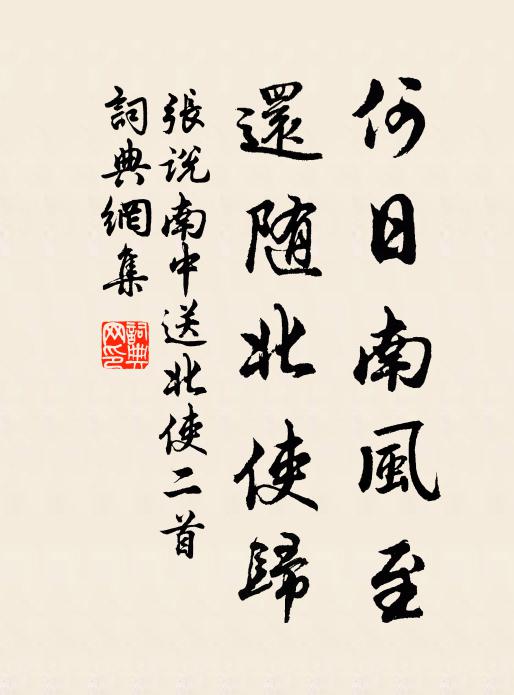 何日南風至
還随北使歸
張説南中送北使二首
詞典網集
詞典網印